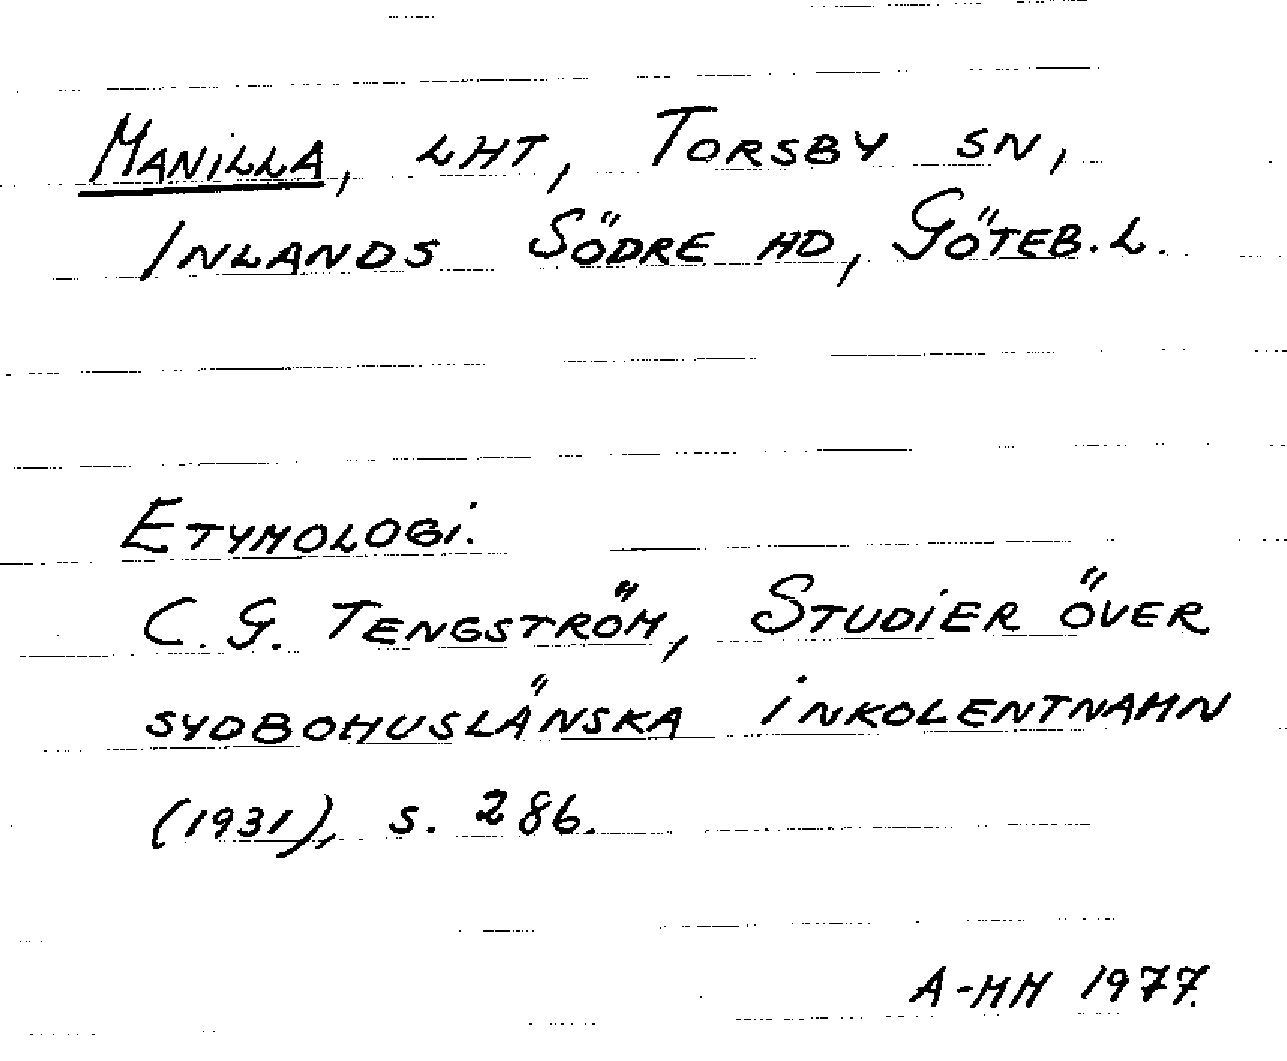 Manilla, lht, Torsby sn,
Inlands Södre hd, Göteb. l.
Etymologi.
C. G. Tengström, Studier över
sydbohuslänska inkolentnamn
(1931), s. 286.
A-MH 1977.